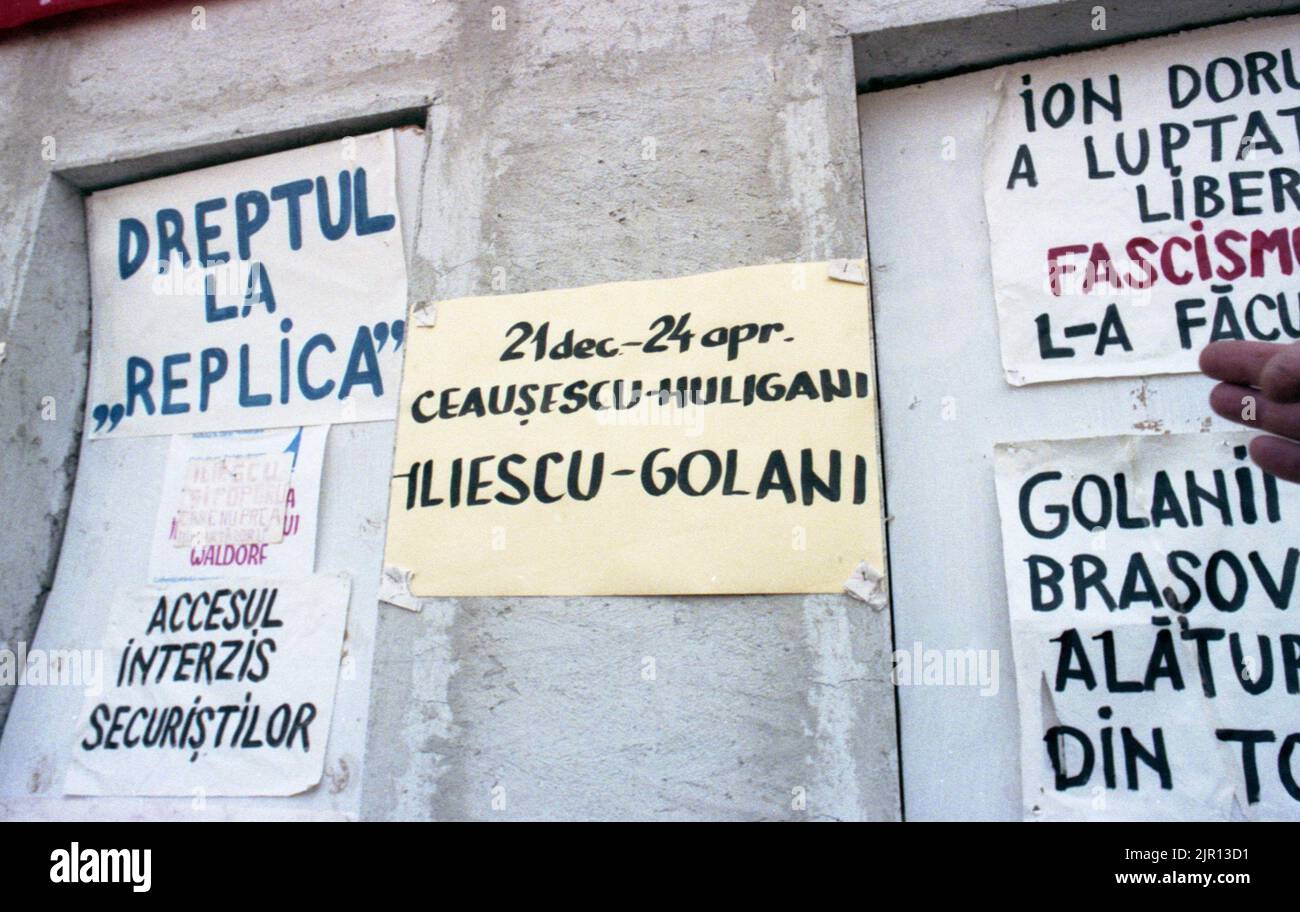 DREPTUL
LA
„REPLICA”
ILIESCU
WALDORF
ACCESUL
INTERZIS
SECURIȘTILOR
21 dec.-24 apr.
CEAUȘESCU-HULIGANI
ILIESCU-GOLANI
ION DORU
A LUPTAT
LIBER
FASCISMU
L-A FĂCU
GOLANII
BRAȘOV
ALĂTUR
DIN TO
alamy
Image ID: 2JR13D1
www.alamy.com